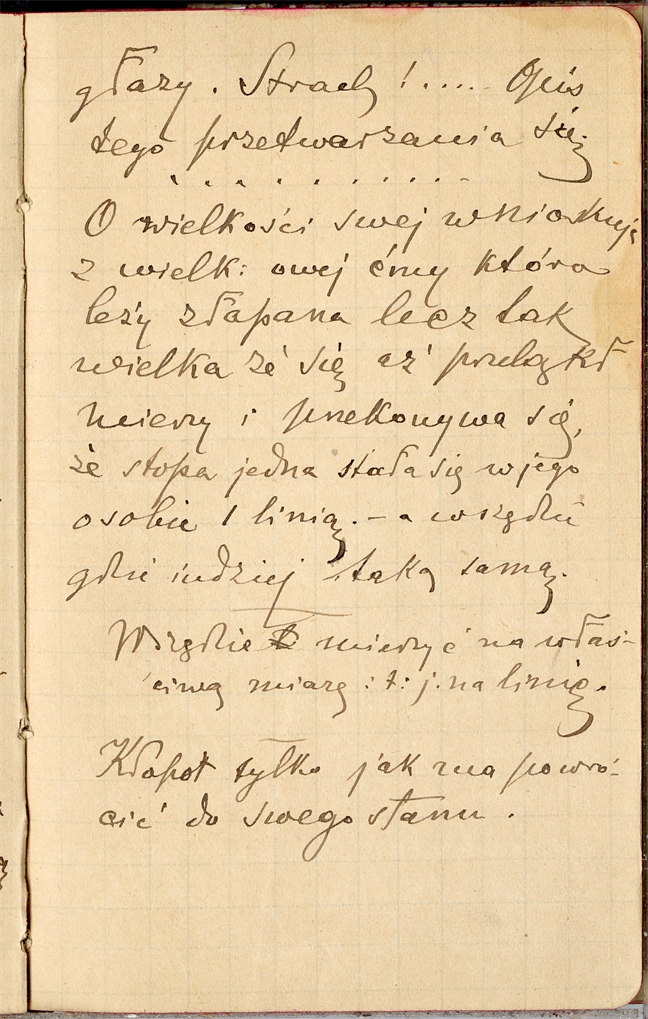 głazy. Strach!.... Opis
tego przetwarzania się
. . . . . . . . . . .
O wielkości swej wnioskuje
z wielk: owej ćmy która
leży złapana lecz tak
wielka że się aż przeląkł
mierzy i przekonywa się,
że stopa jedna stała się w jego
osobie 1 linią. – a wszędzie
gdzie indziej taką samą.
Wszędzie mierzyć na właś-
ciwą miarę : t: j. na linię.
Kłopot tylko jak ma powró-
cić do swego stanu.